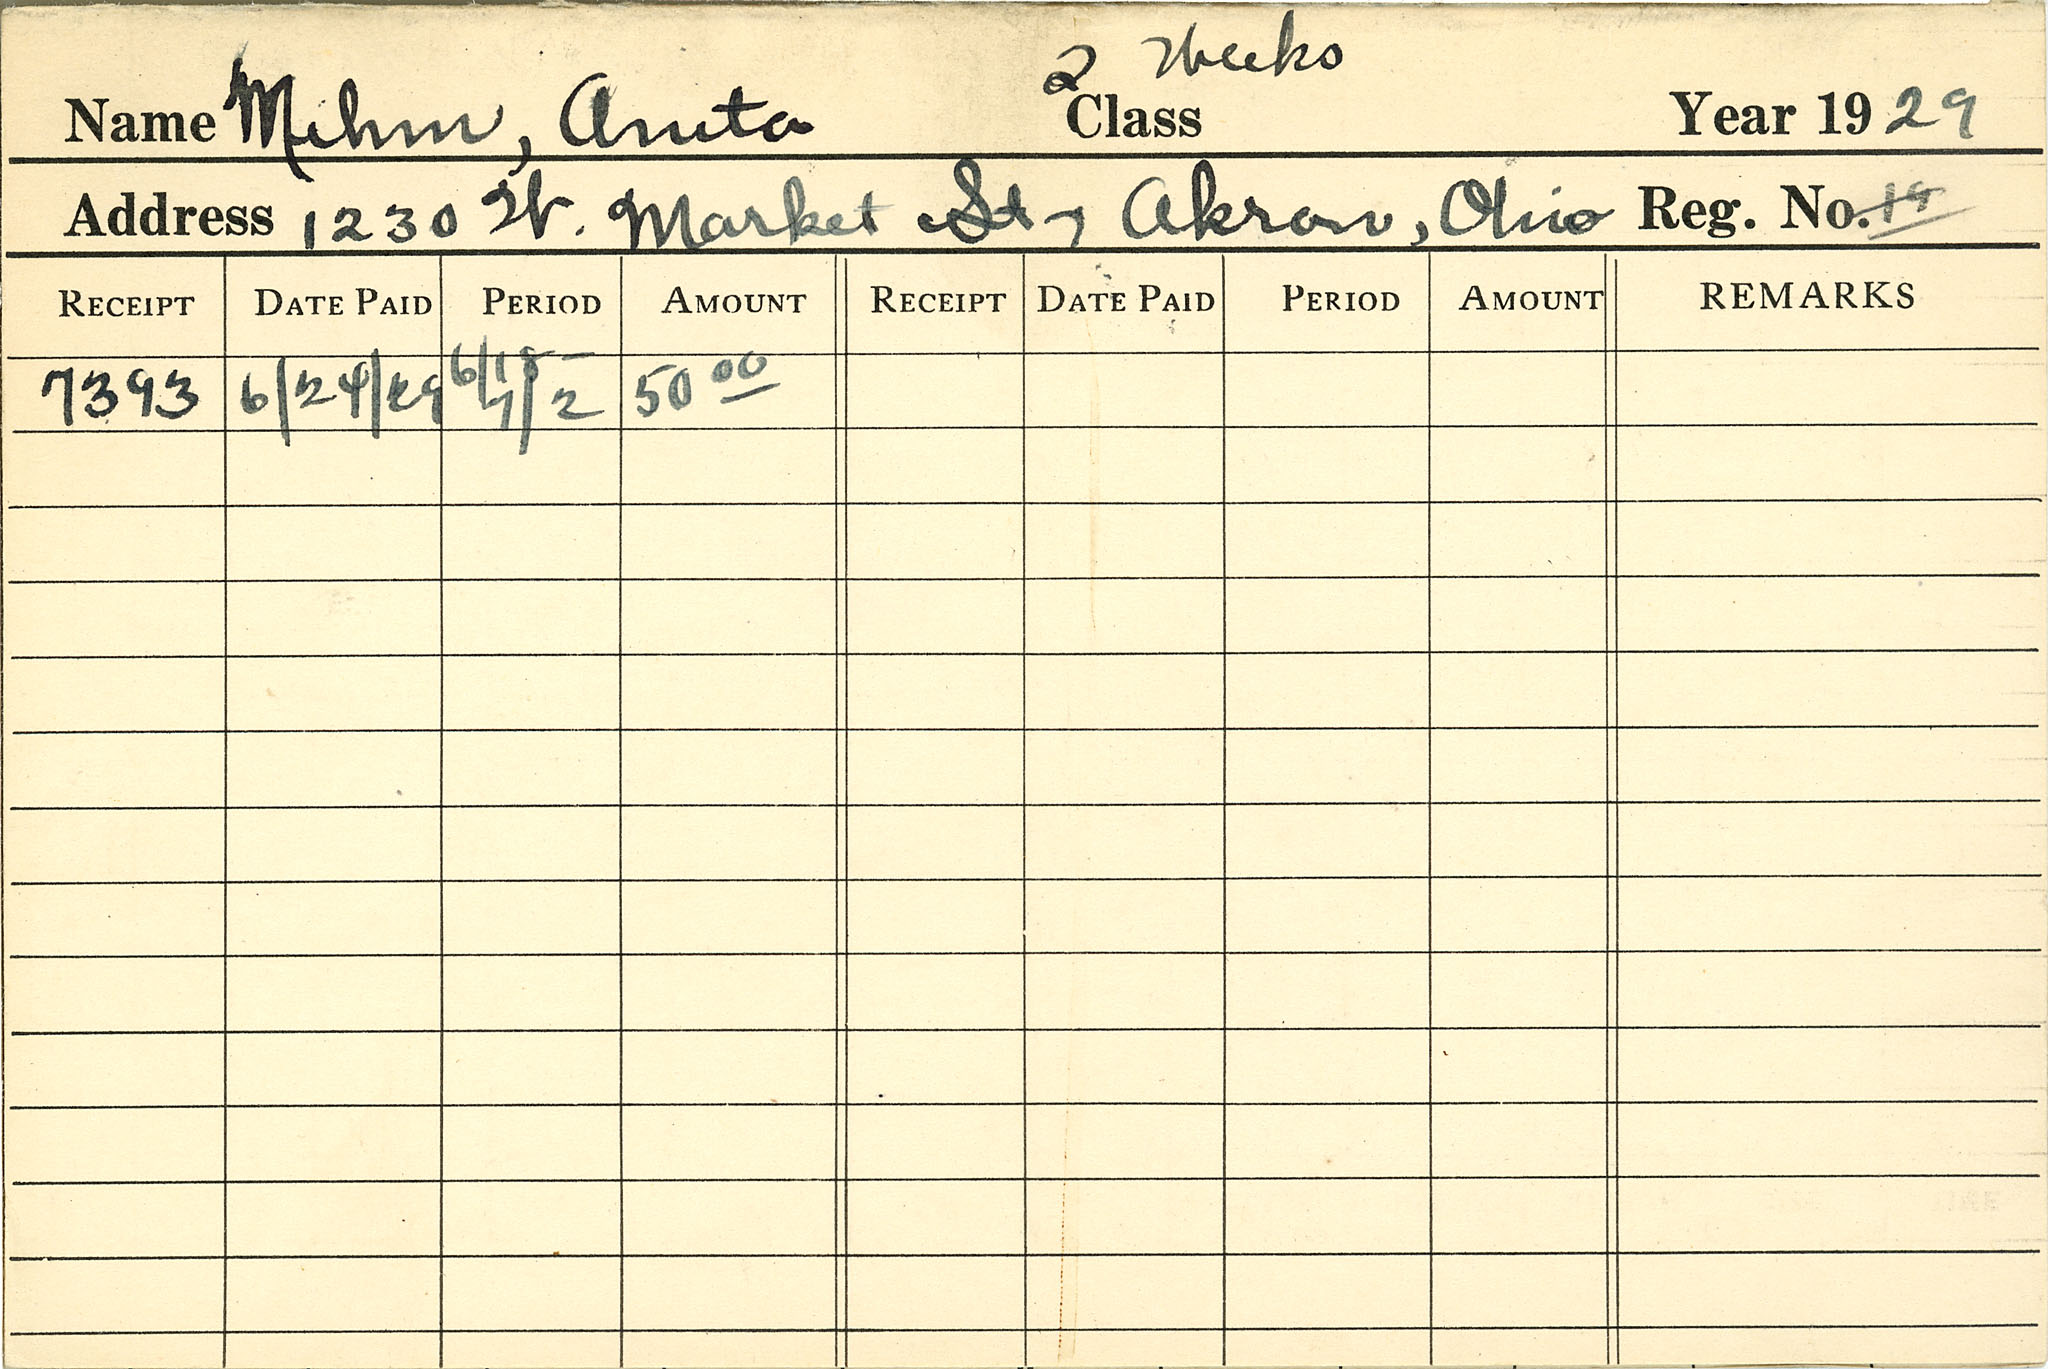 2 Weeks
Name Mihm, Anita Class Year 1929
Address 1230 W. Market St, Akron, Ohio Reg. No.
RECEIPT DATE PAID PERIOD AMOUNT RECEIPT DATE PAID PERIOD AMOUNT REMARKS
7393 6/24/29 6/18 - 7/2 50 00